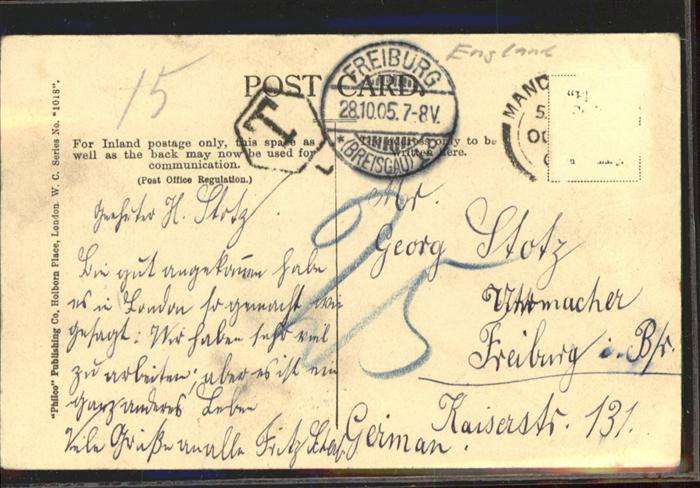 England
15
POST CARD
FREIBURG
28.10.05.7-8V.
* (BREISGAU)
T
MAND
For Inland postage only, this space as
well as the back may now be used for
communication.
(Post Office Regulation.)
only to be
written here.
"Philco" Publishing Co, Holborn Place, London. W. C. Series No. "1018".
Geehrter H. Stotz
Bin gut angekommen habe
es in London so gemacht wie
gesagt: Wir haben sehr viel
zu arbeiten, aber es ist ein
ganz anderes Leben
Viele Grüße an alle Fritz
25
Mr.
Georg Stotz
Uhrmacher
Freiburg i. B/r.
Kaiserstr. 131.
German.